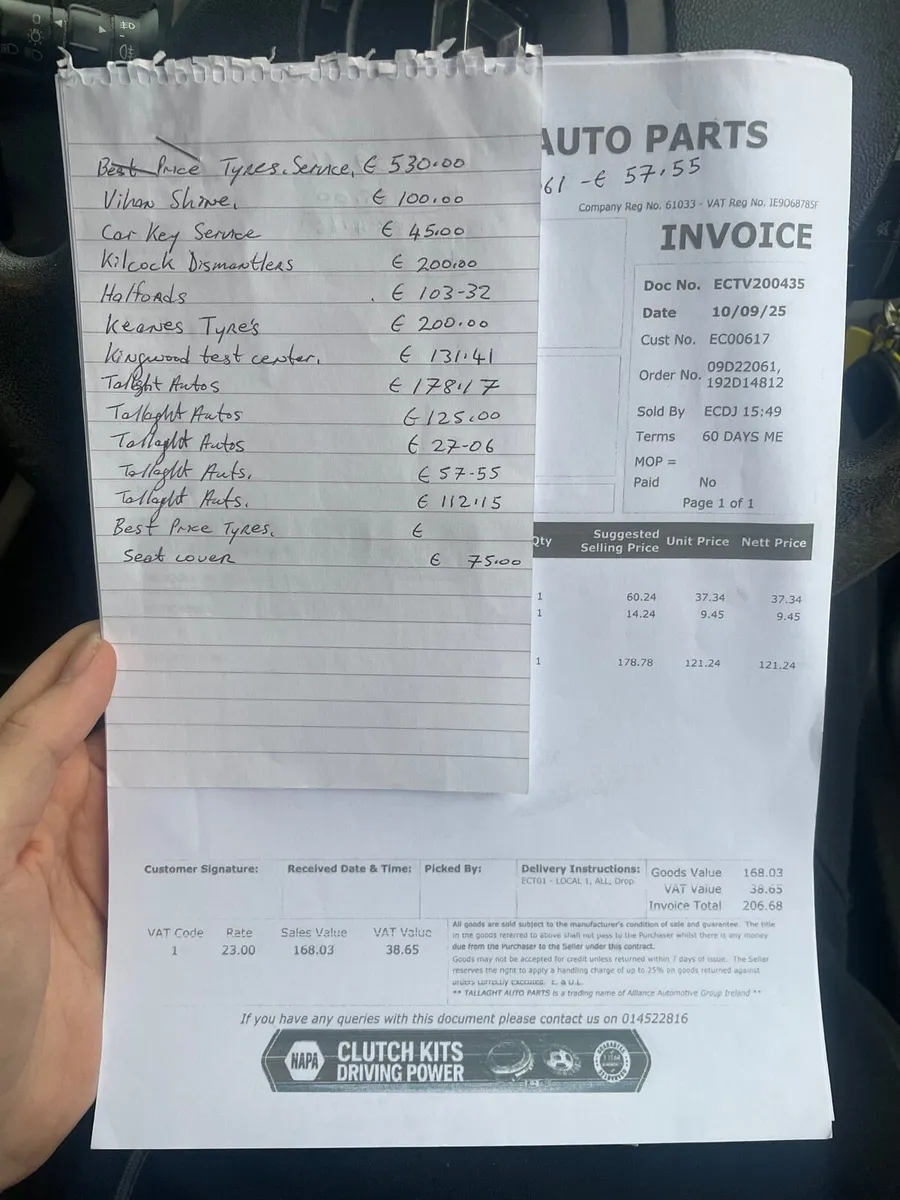 Best Price Tyres. Service, € 530.00
Vihan Shine, € 100.00
Car Key Service € 45.00
Kilcock Dismantlers € 200.00
Halfords € 103-32
Keanes Tyre's € 200.00
Kingwood test center. € 131.41
Tallght Autos € 178.17
Tallaght Autos € 125.00
Tallaght Autos € 27-06
Tallaght Auts. € 57-55
Tallaght Auts. € 112.15
Best Price Tyres. €
Seat cover € 75.00
AUTO PARTS
61 -€ 57.55
Company Reg No. 61033 - VAT Reg No. IE9068785F
INVOICE
Doc No. ECTV200435
Date 10/09/25
Cust No. EC00617
Order No. 09D22061,
192D14812
Sold By ECDJ 15:49
Terms 60 DAYS ME
MOP =
Paid No
Page 1 of 1
Qty Suggested Selling Price Unit Price Nett Price
1 60.24 37.34 37.34
1 14.24 9.45 9.45
1 178.78 121.24 121.24
Customer Signature: Received Date & Time: Picked By: Delivery Instructions:
ECT01 - LOCAL 1, ALL, Drop
Goods Value 168.03
VAT Value 38.65
Invoice Total 206.68
VAT Code Rate Sales Value VAT Value
1 23.00 168.03 38.65
All goods are sold subject to the manufacturer's condition of sale and guarantee. The title
in the goods referred to above shall not pass to the Purchaser whilst there is any money
due from the Purchaser to the Seller under this contract.
Goods may not be accepted for credit unless returned within 7 days of issue. The Seller
reserves the right to apply a handling charge of up to 25% on goods returned against
orders correctly executed. E. & O.E.
** TALLAGHT AUTO PARTS is a trading name of Alliance Automotive Group Ireland **
If you have any queries with this document please contact us on 014522816
NAPA
CLUTCH KITS
DRIVING POWER